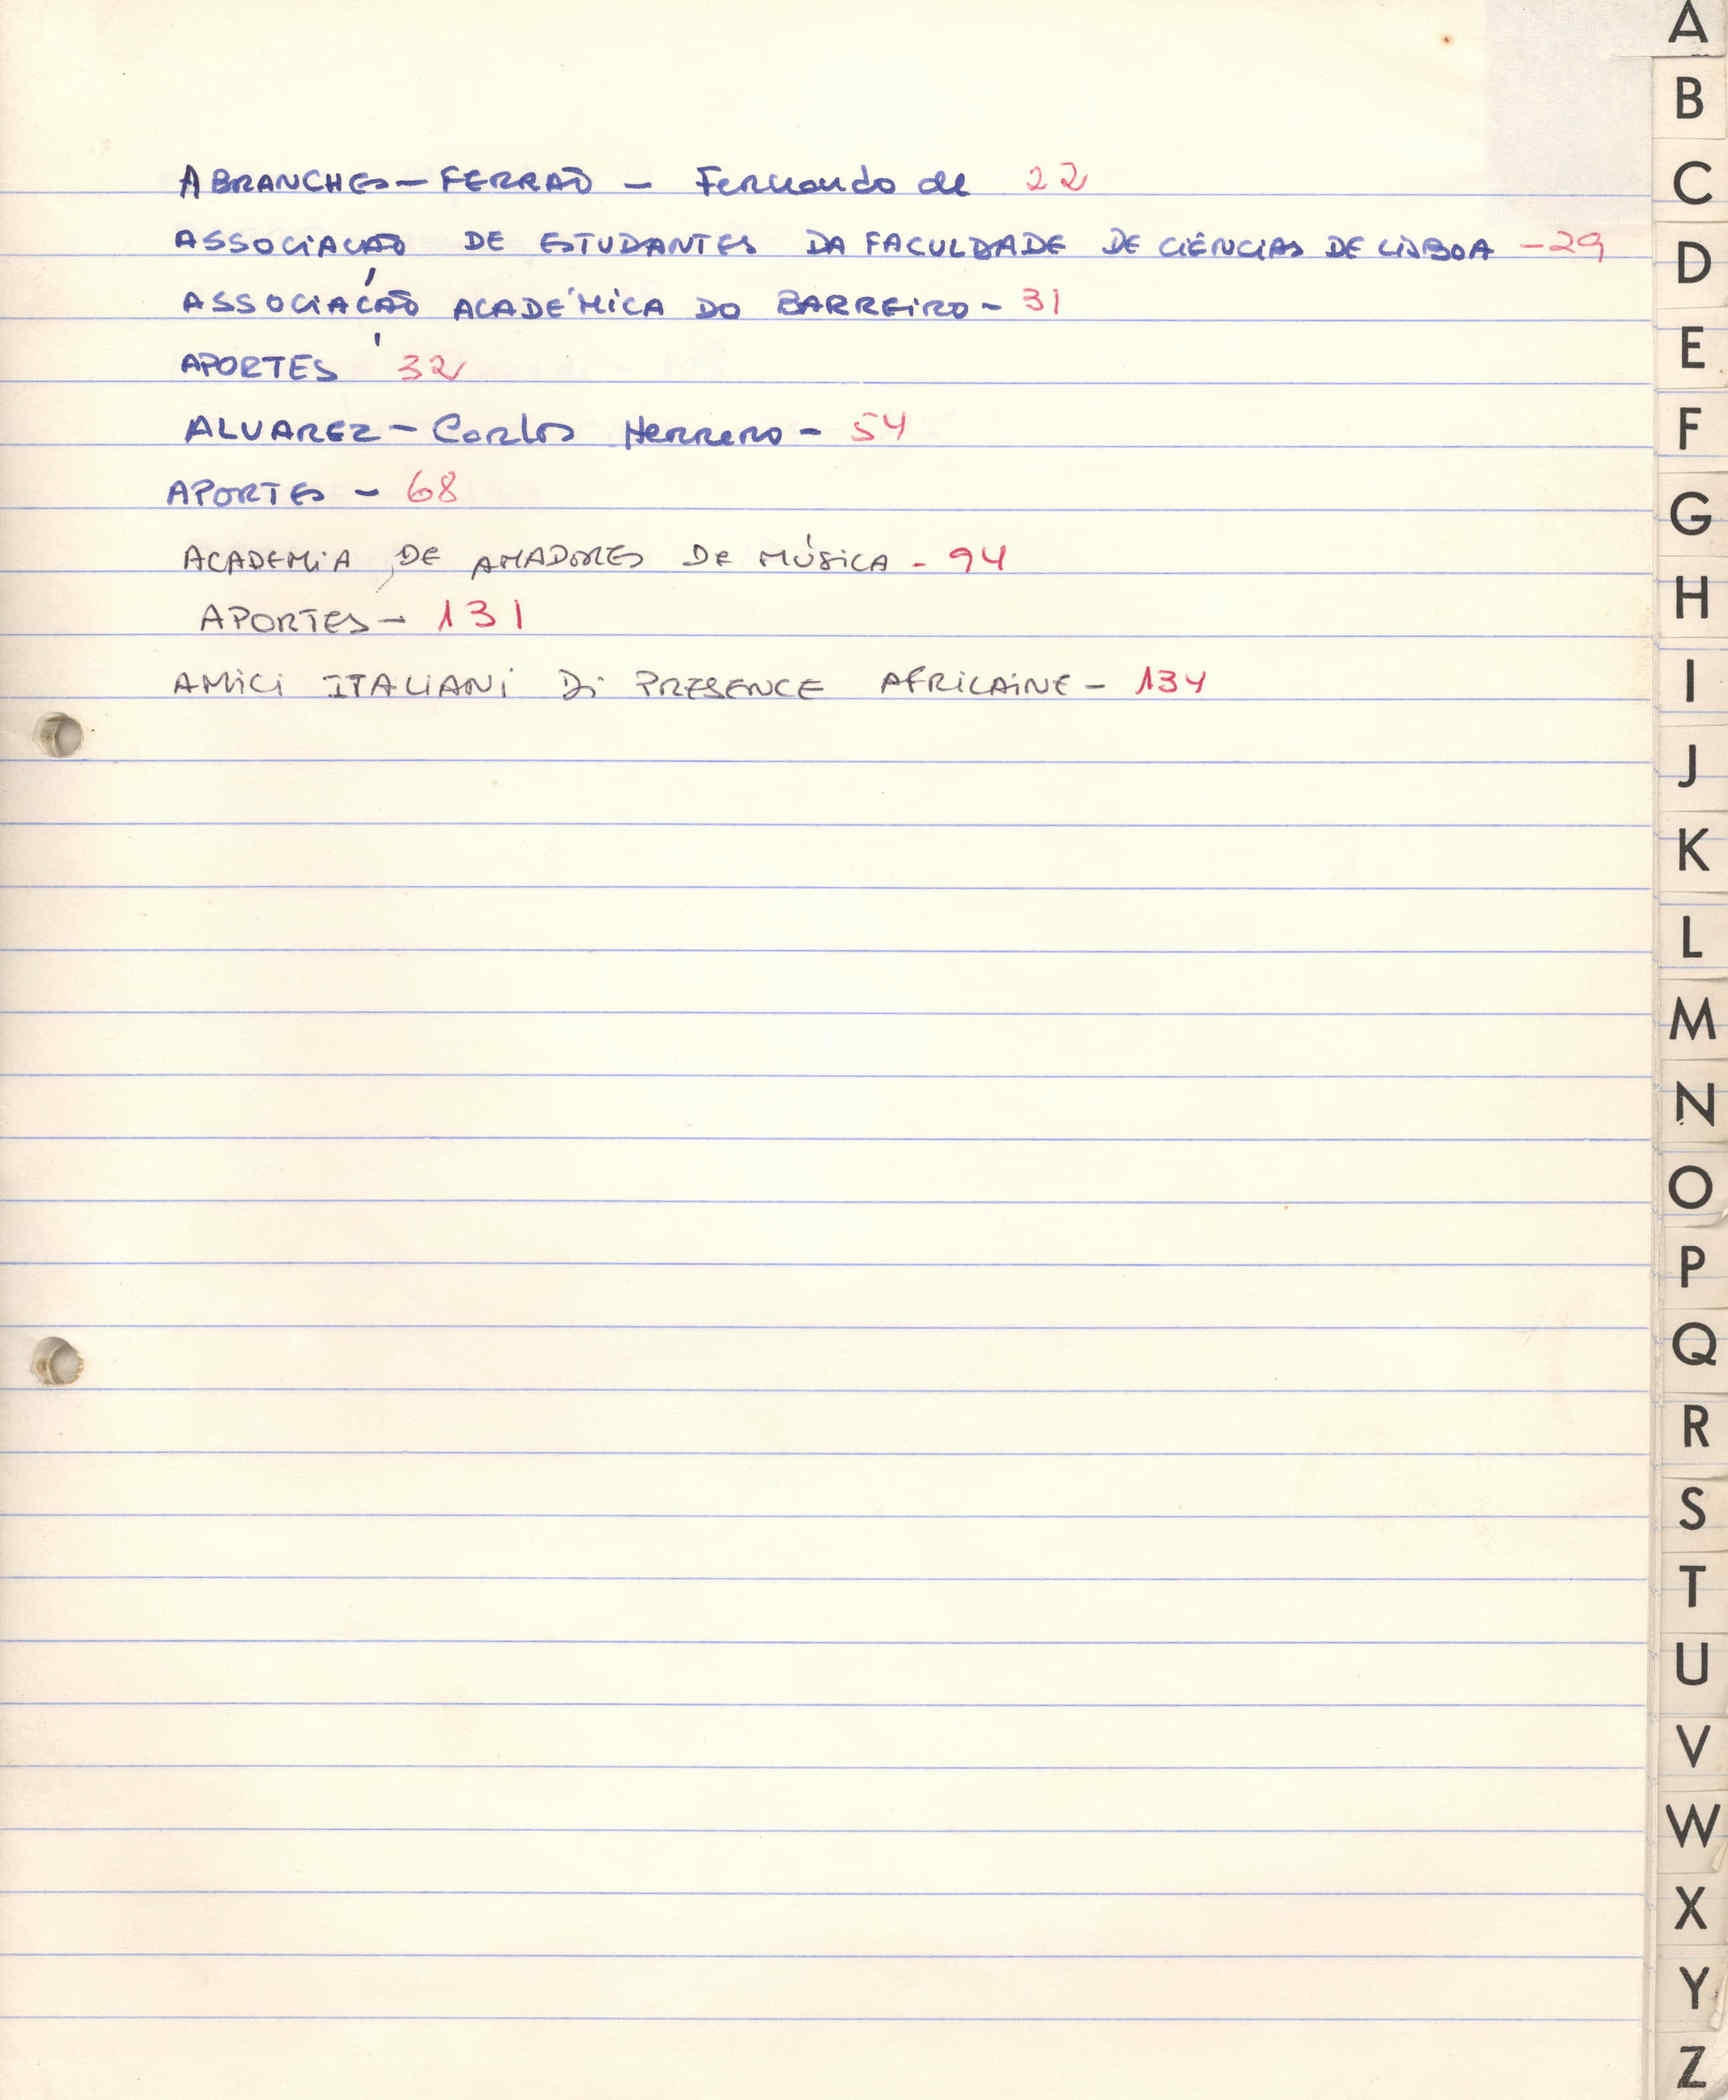 A
B
C
D
E
F
G
H
I
J
K
L
M
N
O
P
Q
R
S
T
U
V
W
X
Y
Z
ABRANCHES - FERRÃO - Fernando de 22
ASSOCIAÇÃO DE ESTUDANTES DA FACULDADE DE CIÊNCIAS DE LISBOA - 29
ASSOCIAÇÃO ACADÉMICA DO BARREIRO - 31
APORTES 32
ALVAREZ - Carlos Herrero - 54
APORTES - 68
ACADEMIA DE AMADORES DE MÚSICA - 94
APORTES - 131
AMICI ITALIANI Di PRESENCE AFRICAINE - 134